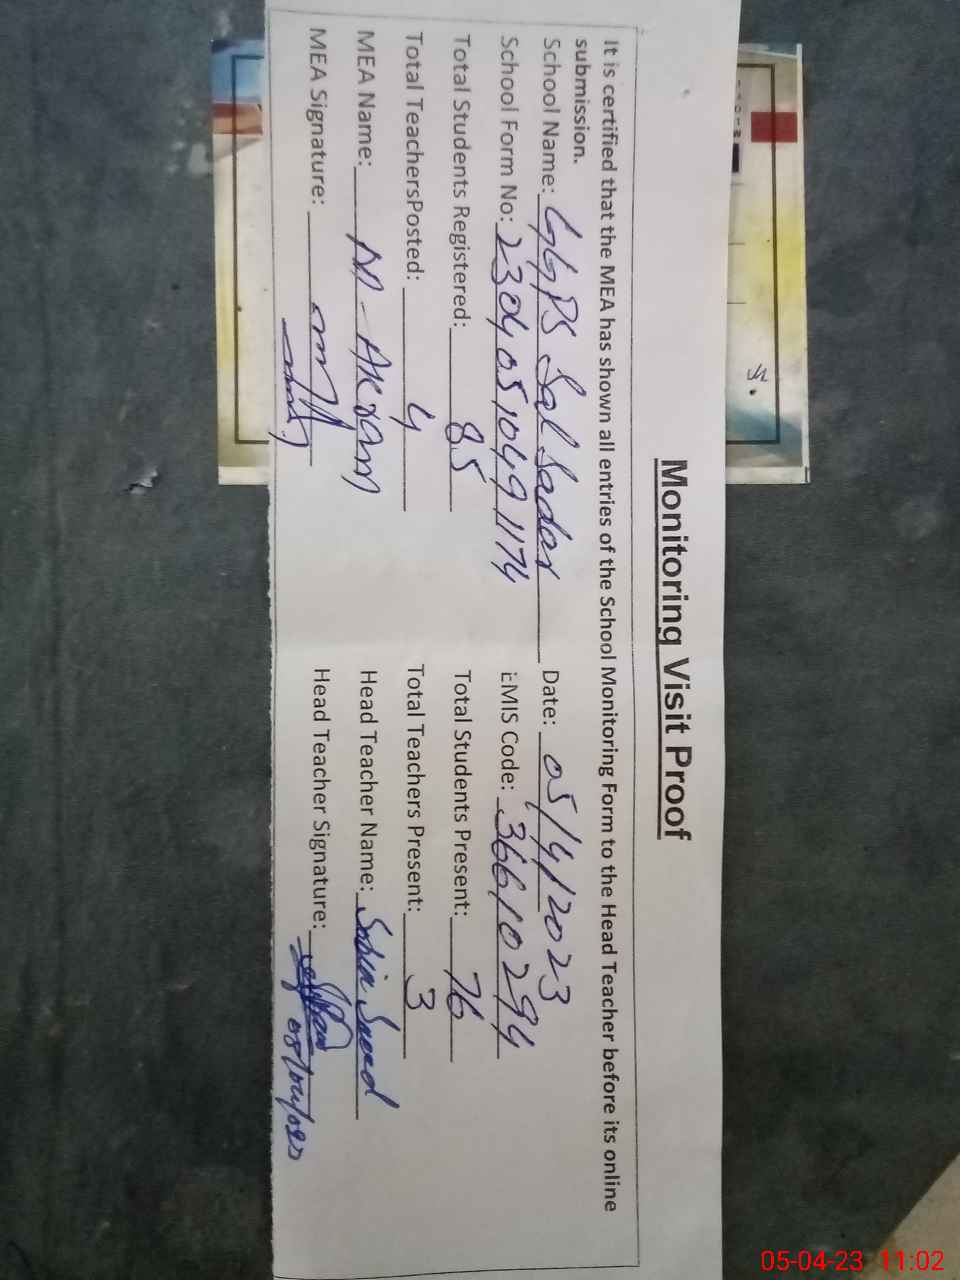 Monitoring Visit Proof
It is certified that the MEA has shown all entries of the School Monitoring Form to the Head Teacher before its online
submission.
School Name: GGPS Sal Sadar Date: 05/4/2023
School Form No: 23040510491174 EMIS Code: 36610294
Total Students Registered: 85 Total Students Present: 76
Total TeachersPosted: 4 Total Teachers Present: 3
MEA Name: M-Akram Head Teacher Name: Sobia Saeed
MEA Signature: Head Teacher Signature:
05-04-23 11:02